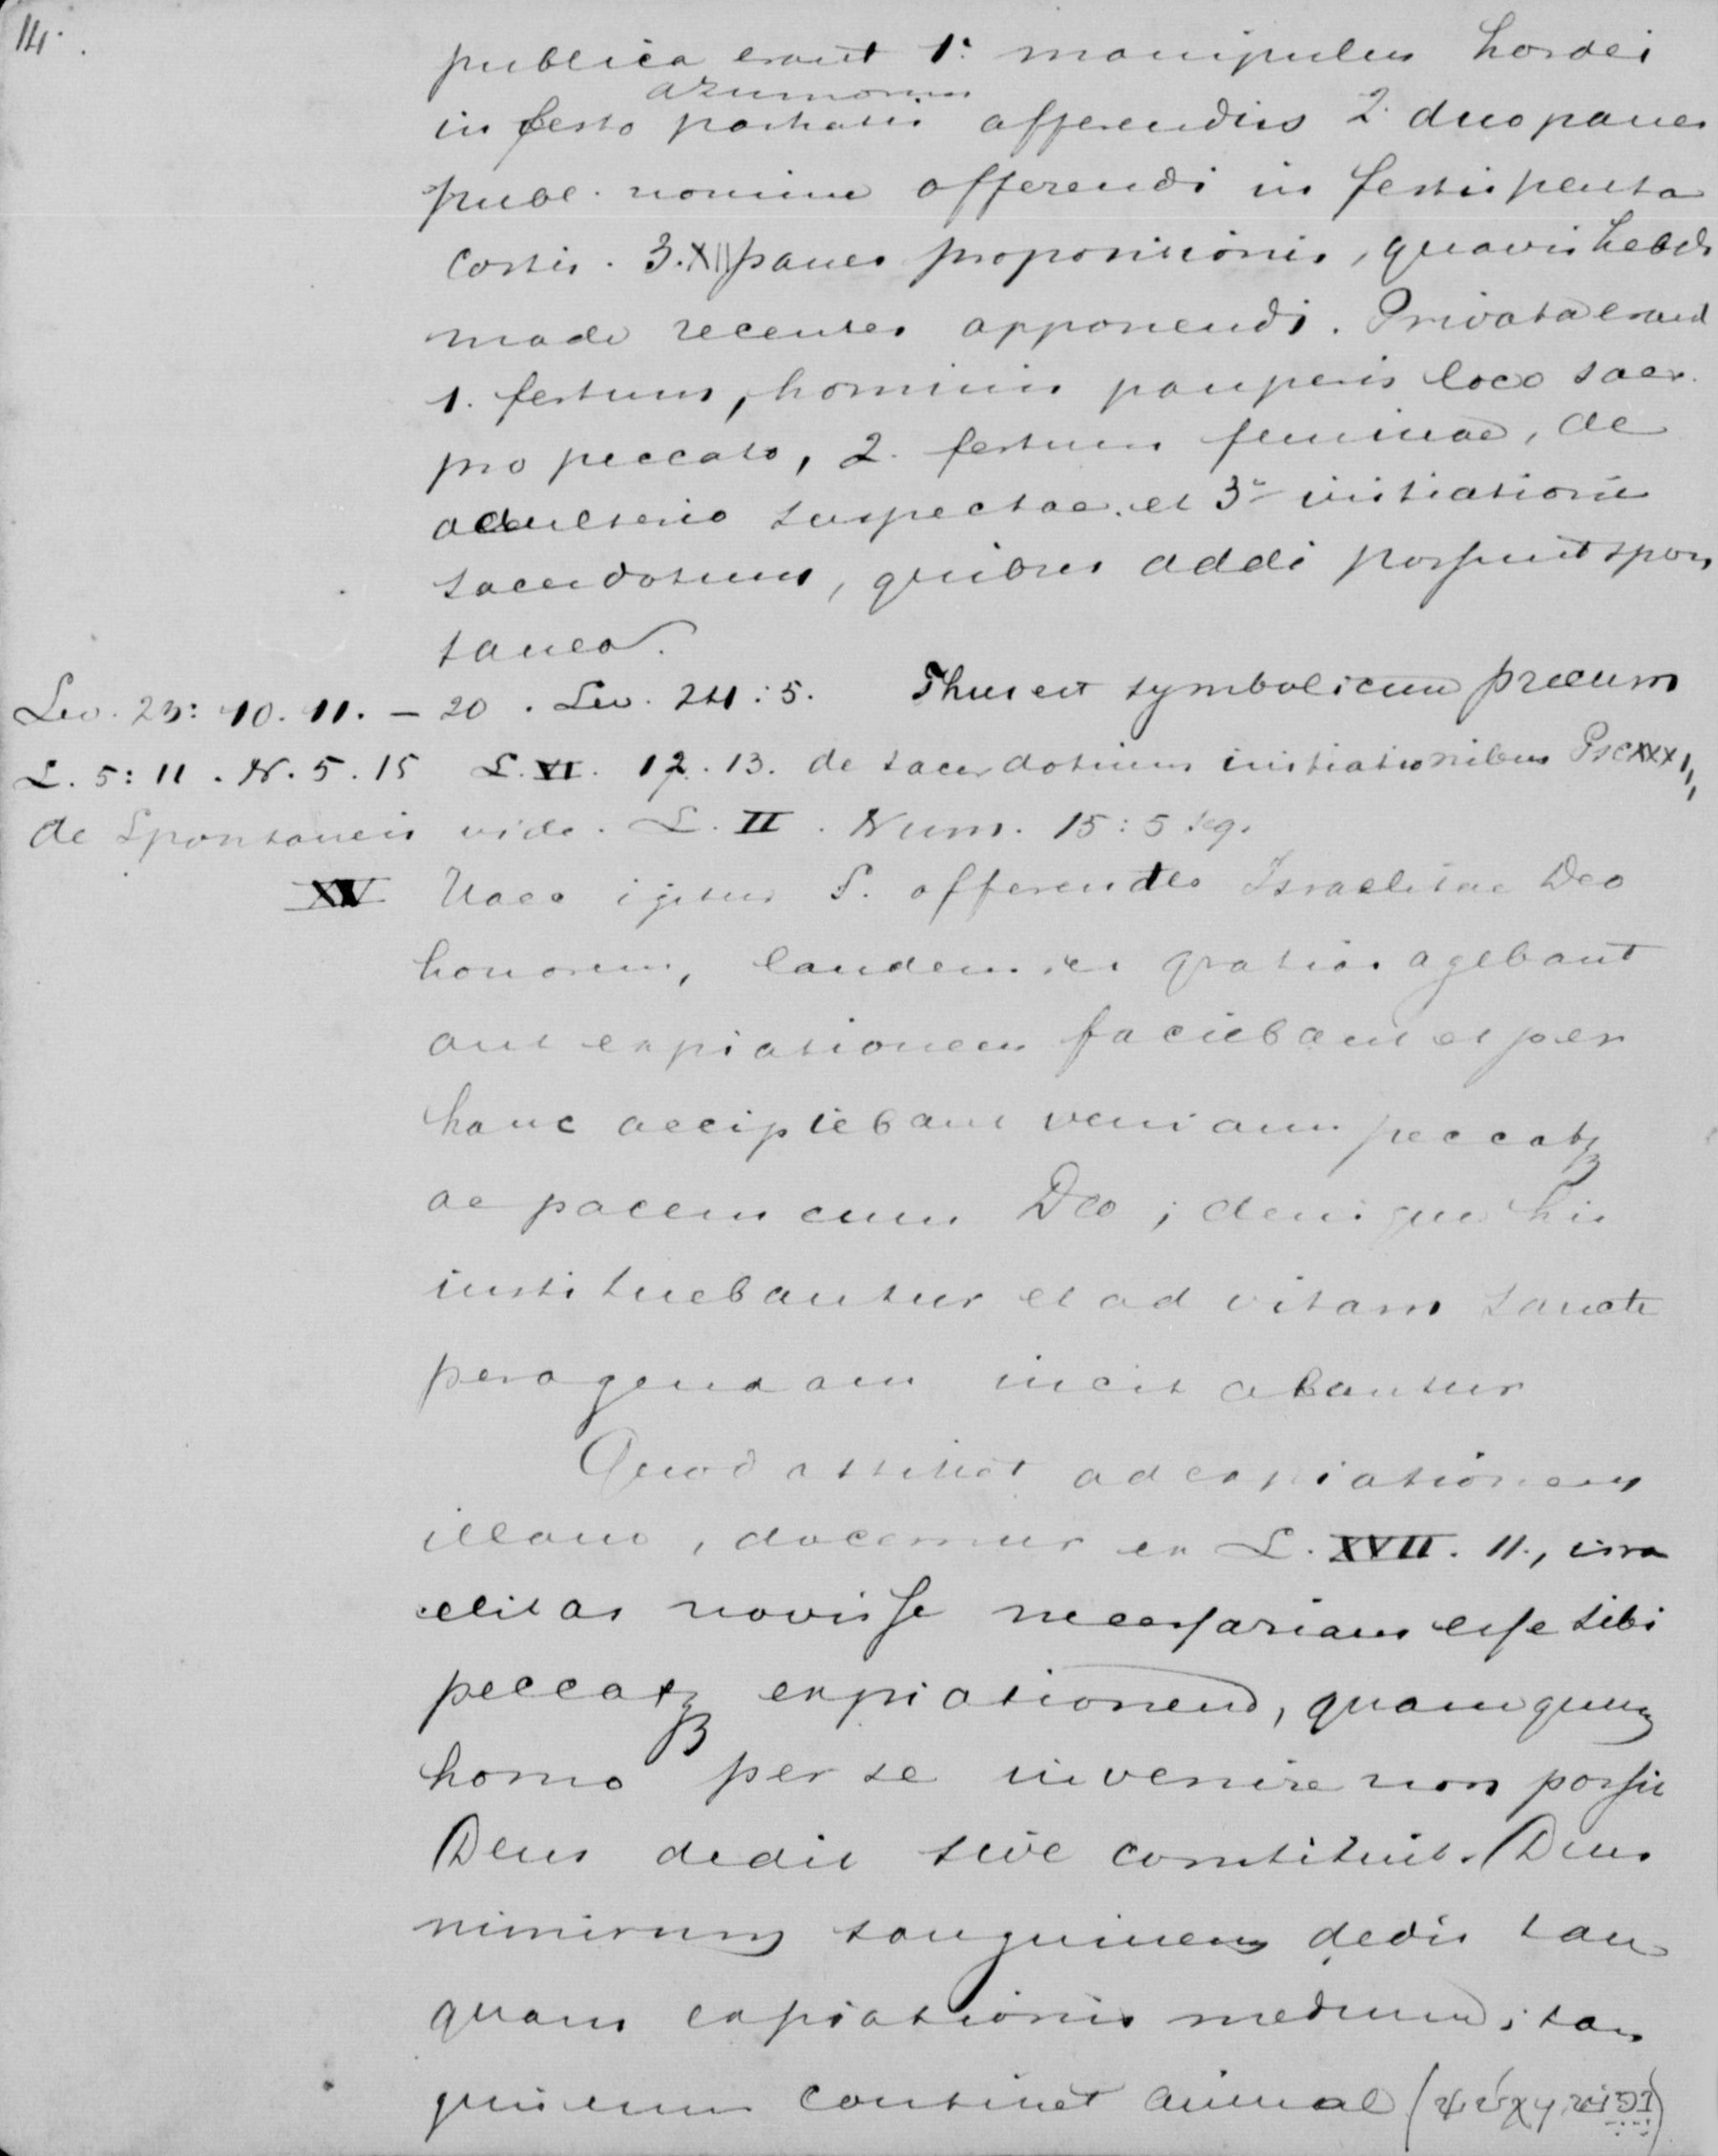 14.
publica erant 1. manipulus hordei
azumorum
in festo paschatis offerendus 2. duo panes
publ. nomine offerendi in festis pente
costis. 3. XII panes propositionis, quavis hebdo
made recentes apponendi. Privata erant
1. fertum, hominis pauperis loco sacr.
pro peccato, 2. fertum feminae, de
adulterio suspectae. et 3. initiationis
sacerdotum, quibus addi possunt spon
tanea.
Thus est symbolicum precum
Lev. 23: 10. 11. – 20. Lev. 24: 5.
L. 5: 11. N. 5. 15 L. VI. 12. 13. de sacerdotum initiationibus
de Spontaneis vide. L. II. Num. 15: 5 seq.
XV igitur S. offerentes Israelitae Deo
honorem, laudem gratias agebant
aut expiationem faciebant et per
hanc accipiebant veniam peccatꝝ
ac pacem cum Deo; denique his
instituebantur et ad vitam sancte
peragendam incitabantur
Quod attinet ad expiationem
illam, docemur ex L. XVII. 11., isra
elitas novisse necessariam esse sibi
peccatꝝ expiationem, quam quum
homo per se invenire non possit
Deus dedit sive constituit. Deus
nimirum sanguinem dedit tan
quam expiationis medium; san
guinem continet animal (ψύχη,